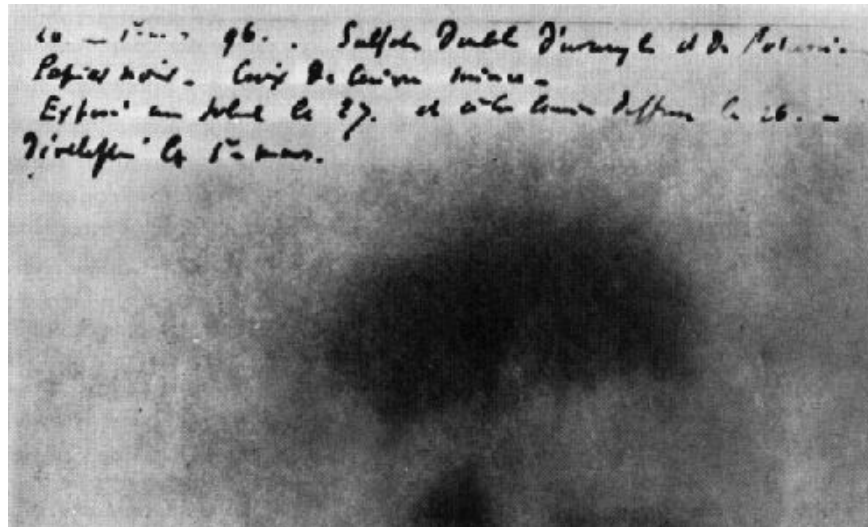 96. Sulfate Double d'uranyle et de Potassium.
Papier noir. Croix de Cuivre mince.
Exposé au soleil le 27. et à la lumière diffuse le 26.
Développé le 1er mars.